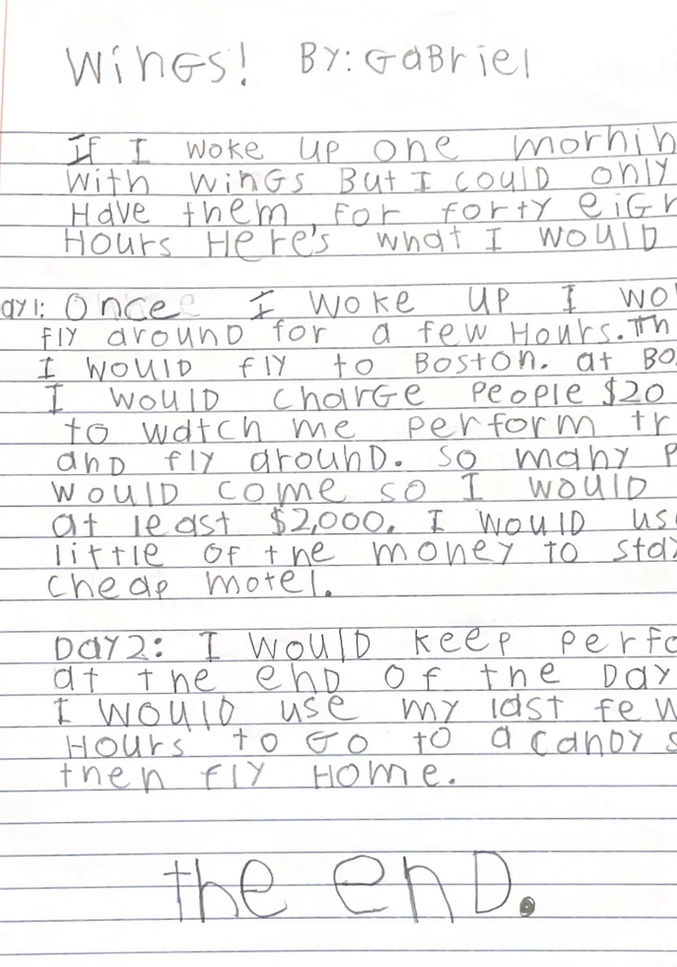 WiNGS! BY: GaBriel
If I woke up one mornin
with wings But I could only
Have them for forty eigh
Hours Here's what I would
ay1: Once I woke up I wo
fly around for a few Hours. Th
I would fly to Boston. at Bo
I would charge people $20
to watch me perform tr
and fly around. so many p
would come so I would
at least $2,000. I would us
little of the money to stay
cheap motel.
Day 2: I would keep perfo
at the end of the Day
I would use my last few
Hours to Go to a candy s
then fly Home.
the end.